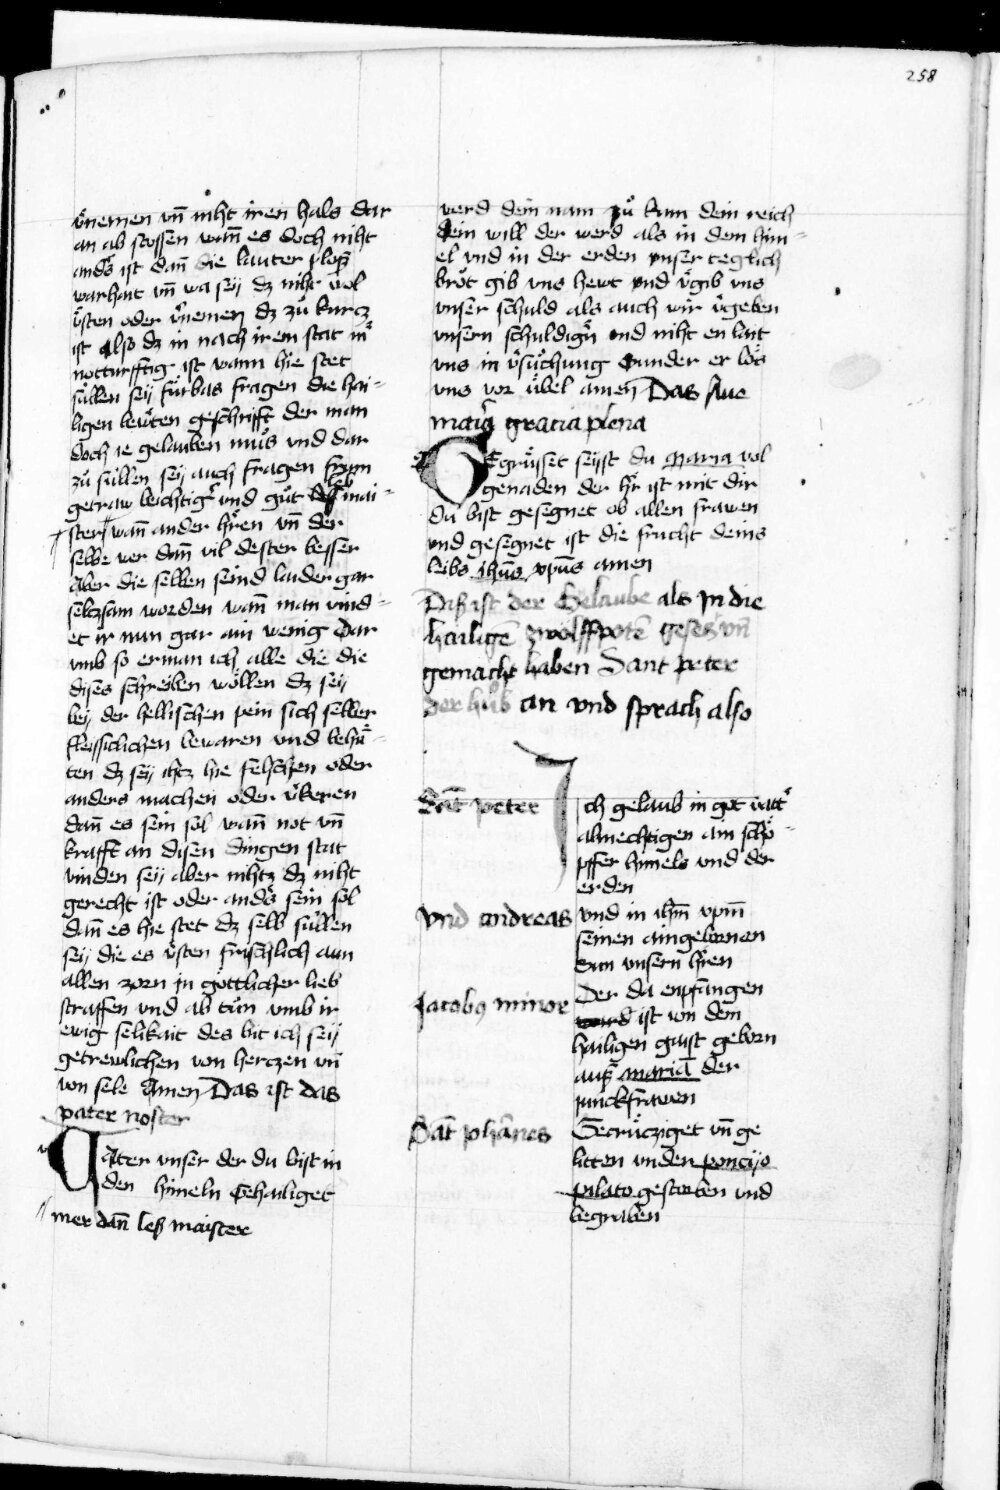 258
v̾nemen vn̄ niht iren hals dar
an ab stossen wan̄ es doch niht
and̾s ist dan̄ die lauter plosz
warhait vn̄ wa seÿ dz niht wol
v̾sten oder v̾nemen dz zů kurcz
ist also dz in nach irem stat in̾
notturfftig ist wann hie stet
sůllen seÿ fürbas fragen die hai-
ligen leẅten geschrifft der man
doch ie gelauben můs vnd dar
zů sůllen seÿ auch fragen frum
getraw beichtig̾ vnd gůt mai-
ster wan̄ ander hr̄en vn̄ der
selbe wer dan̄ vil dester besser
Aber die selben seind laider gar
seltzsam worden wan̄ man vind-
et ir nun gar ain wenig Dar
vmb so erman ich alle die die
dises schreiben wöllen dz seÿ
beÿ der hellischen pein sich selber
fleissiclichen bewaren vnd behů-
ten dz seÿ ihtz hie felschen oder
anders machen oder v̾keren
dan̄ es sein sol wann not vn̄
krafft an disen dingen stat
vinden seÿ aber nihtz dz niht
gerecht ist oder and̾s sein sol
dan̄ es hie stet dz selb sůllen
seÿ die es v̾sten frischlich aun
allen zorn in göttlicher lieb
straffen vnd ab tůn vmb ir
ewig selikait des bit ich seÿ
getrewlichen von herczen vn̄
von sele Amen Das ist das
pater noster
Vater vnser der du bist in
den himeln Gehailiget
mer dan̄ les maister
werd dein nam zů kum dein reich
dein will der werd als in dem him-
el vnd in der erden vnser teglich
bröt gib vns hewt vnd v̾gib vns
vnser schuld als auch wir v̾geben
vnsern schuldign̾ vnd niht en lait
vns in v̾sůchung Sunder er lös
vns vor übel amen Das Aue
maria gracia plena
Gegrüsset seisst du Maria vol
genaden der hr̄ ist mit dir
du bist gesegnet ob allen frawen
vnd gesegnet ist die frucht deins
leibs ihūs xp̄us amen
Das ist der Gelaube als in die
hailigē zwölffpotē geseczt vn̄
gemacht haben Sant peter
der hůb an vnd sprach also
Sāt peter
Ich gelaub in got vatt̾
almechtigen ain schö-
pffer himels vnd der
erden
vnd andreas
vnd in ihm̄ xpm̄
seinen aingebornen
sun vnsern hr̄en
Jacobus minor
Der da enpfangen
ward ist von dem
hailigen gaist geborn
ausz mariā der
junckfrawen
Sāt Johānes
Gecrücziget vn̄ ge
litten vnder poncijo
pilato gestorben vnd
begraben